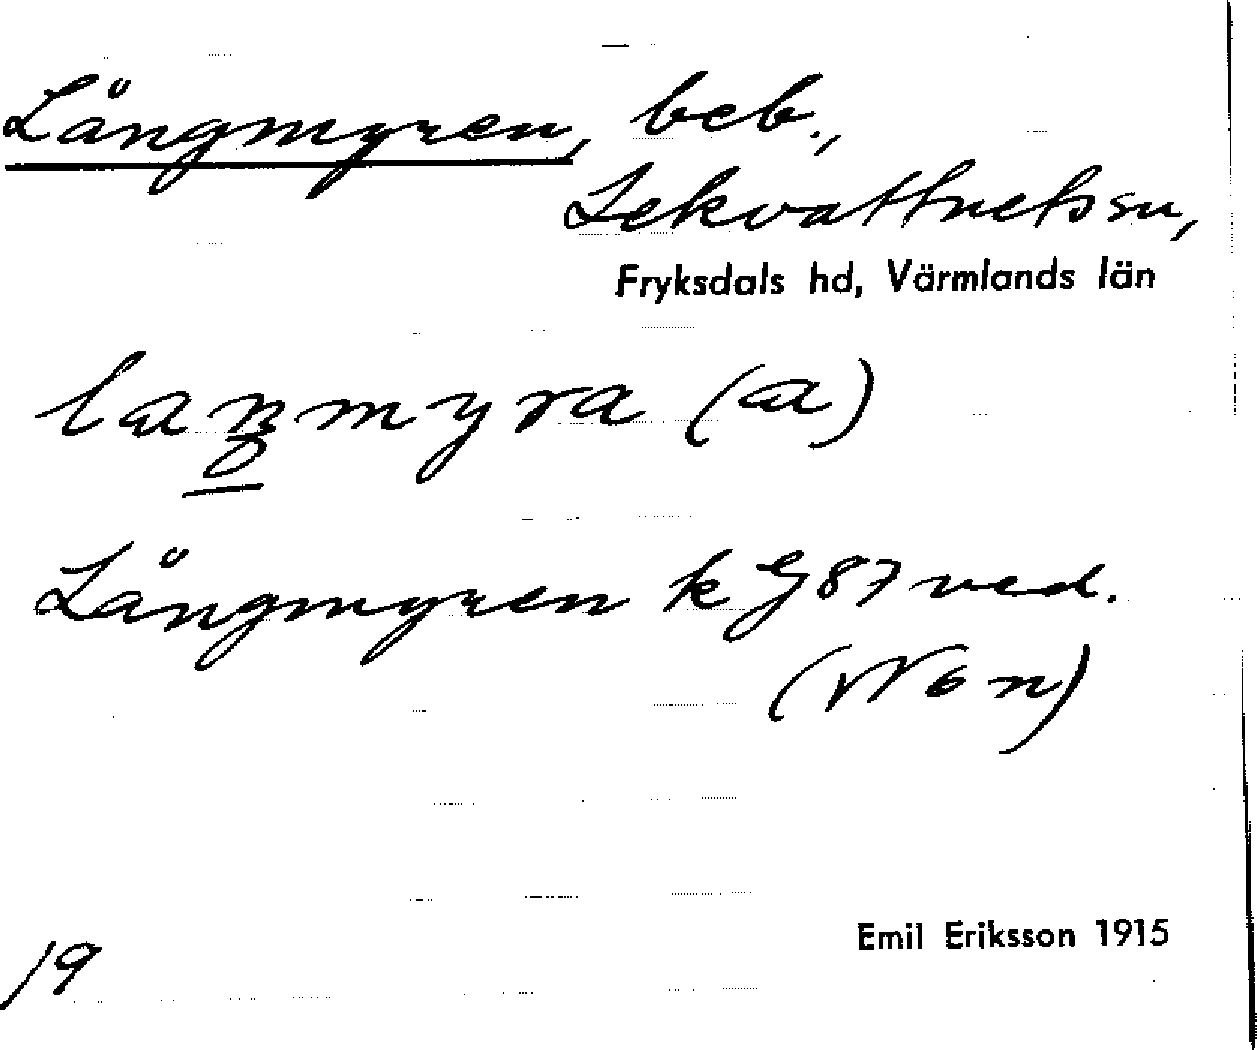 Långmyren, beb.,
Lekvattnets sn,
Fryksdals hd, Värmlands län
laŋmyra (a)
Långmyren k G 87 ved.
(Won)
Emil Eriksson 1915
19